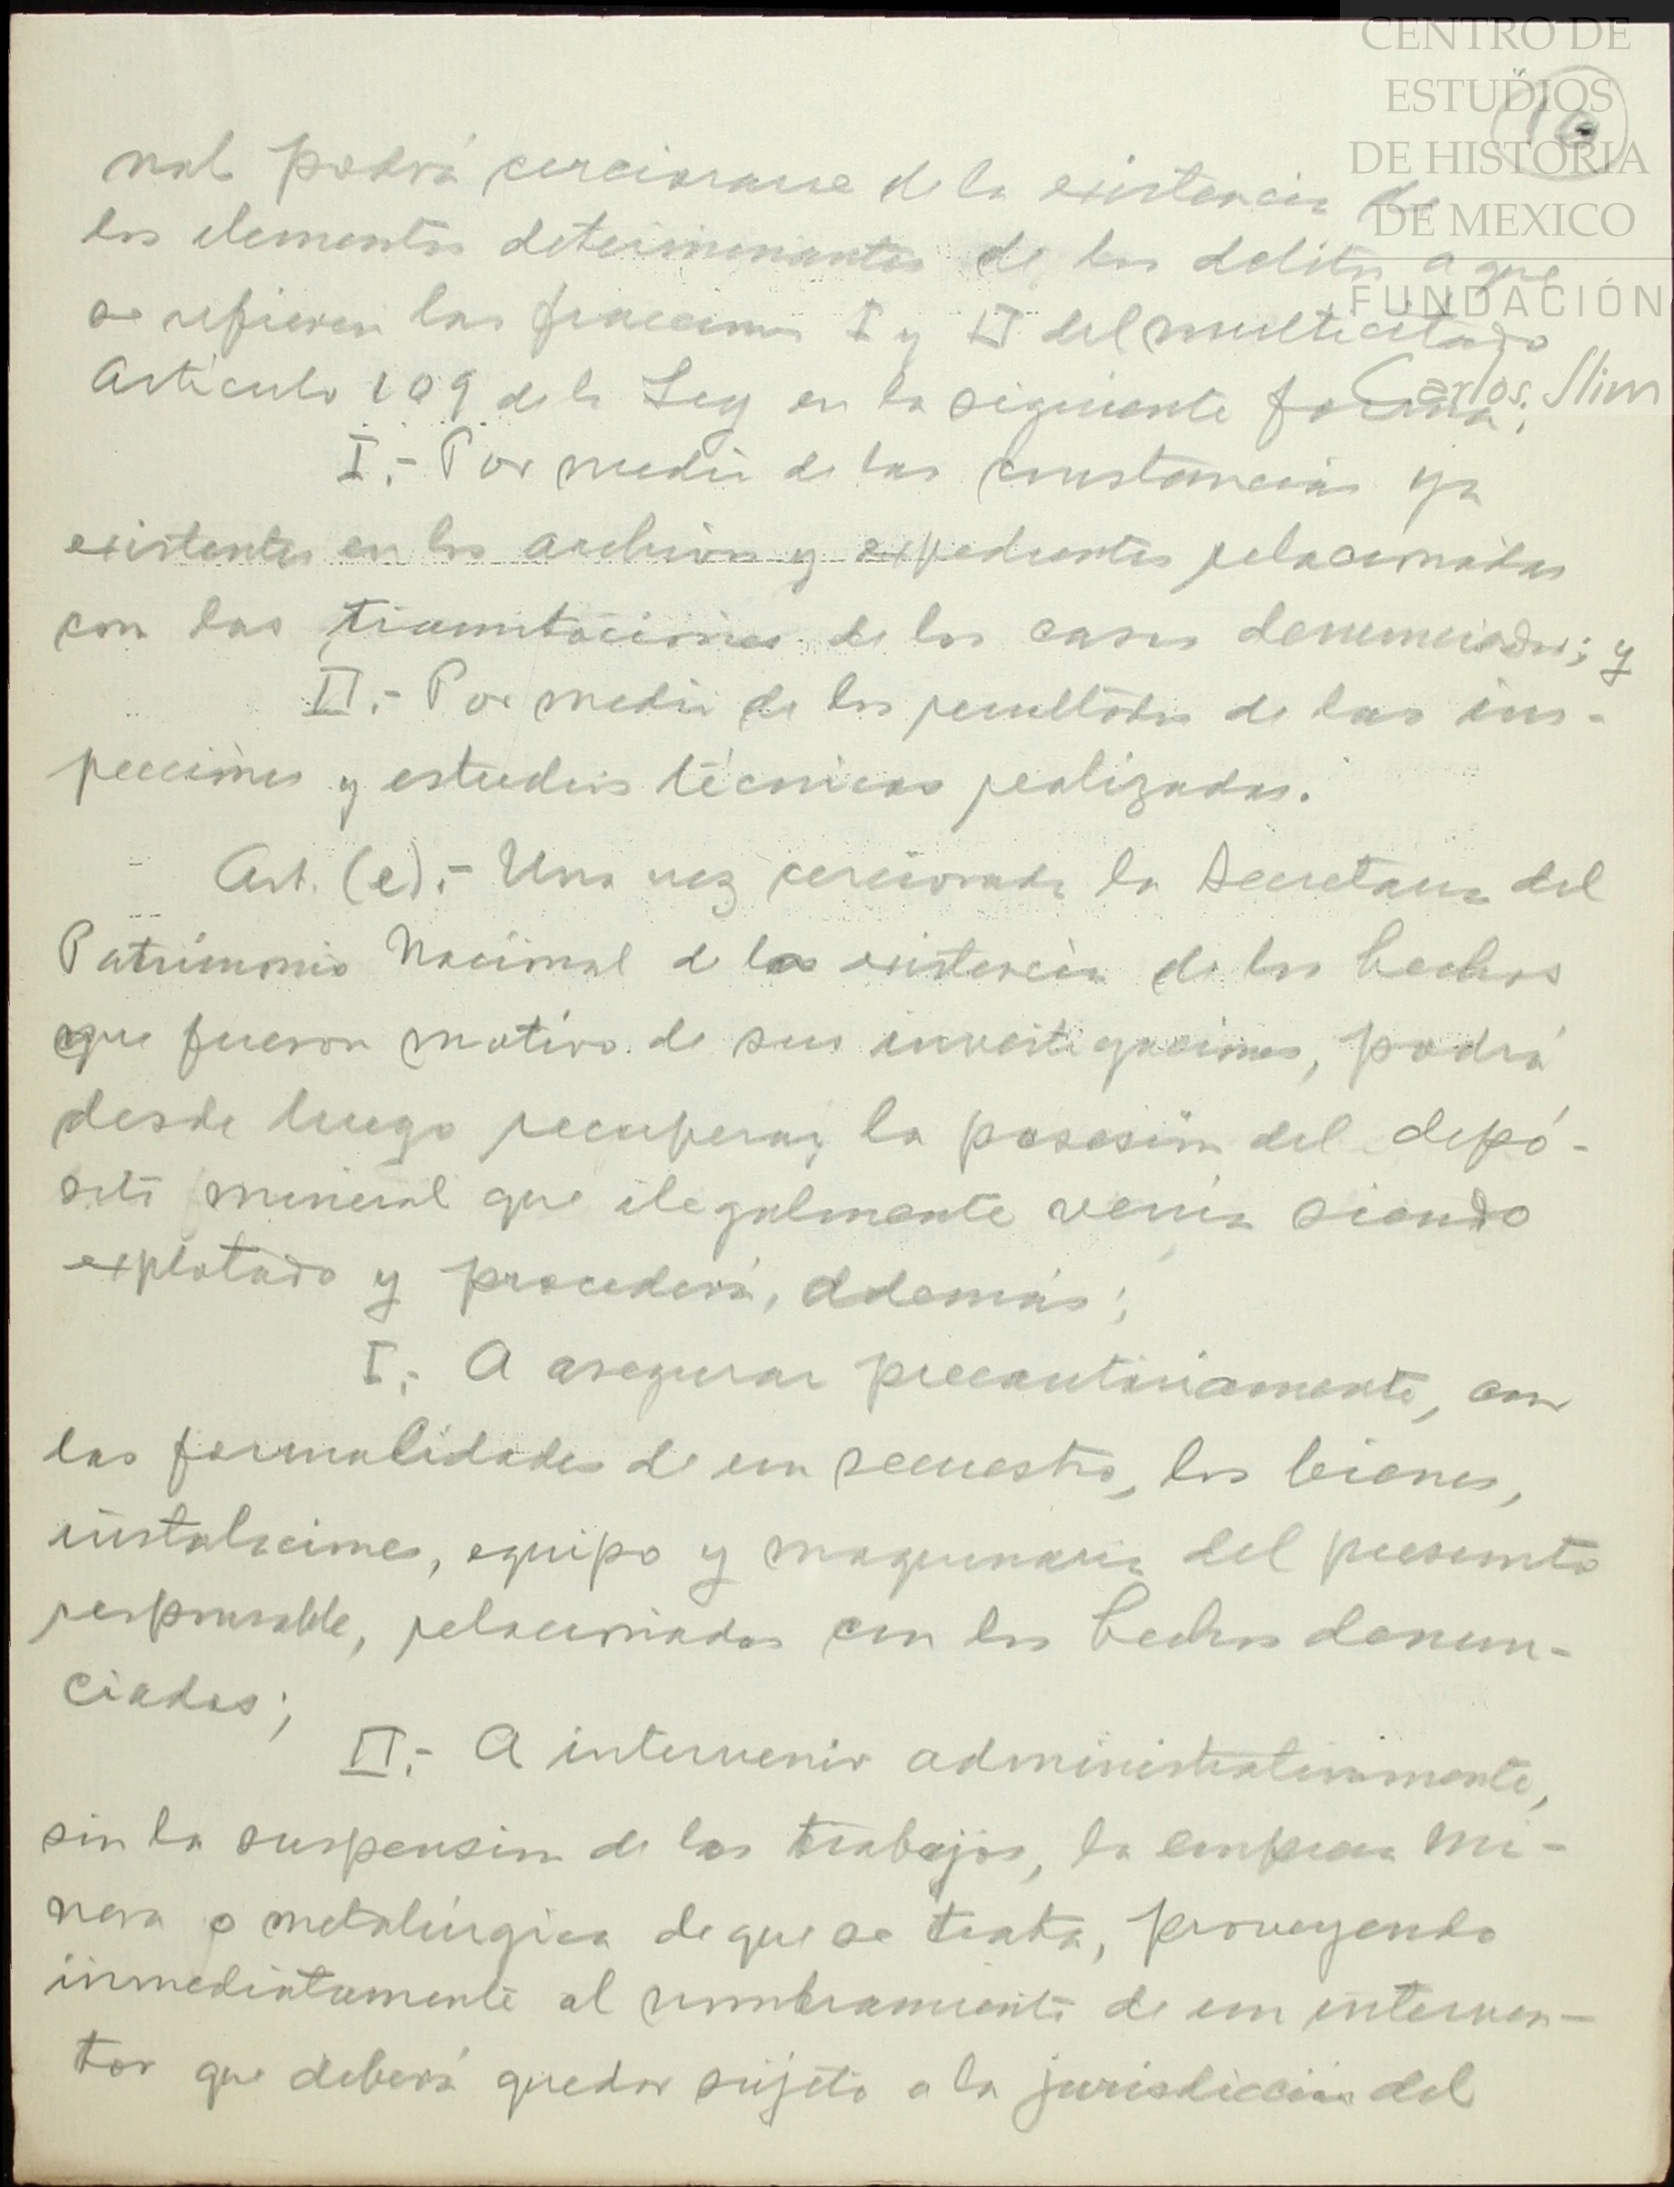 CENTRO DE
ESTUDIOS
DE HISTORIA
DE MEXICO
FUNDACIÓN
Carlos Slim
nal podrá cerciorarse de la existencia de
los elementos determinantes de los delitos a que
se refieren las fracciones I y II del multicitado
Artículo 109 de la Ley en la siguiente forma:
I.- Por medio de las constancias ya
existentes en los archivos y expedientes relacionados
con las tramitaciones de los casos denunciados; y
II.- Por medio de los resultados de las ins-
pecciones y estudios técnicos realizados.
Art. (e).- Una vez cerciorada la Secretaria del
Patrimonio Nacional de la existencia de los hechos
que fueron motivo de sus investigaciones, podrá
desde luego recuperar la posesión del depó-
sito mineral que ilegalmente venía siendo
explotado y procederá, además:
I.- A asegurar precautoriamente, con
las formalidades de un secuestro, los bienes,
instalaciones, equipo y maquinaria del presunto
responsable, relacionados con los hechos denun-
ciados;
II.- A intervenir administrativamente,
sin la suspensión de los trabajos, la empresa mi-
nera o metalúrgica de que se trata, proveyendo
inmediatamente al nombramiento de un interven-
tor que deberá quedar sujeto a la jurisdicción del